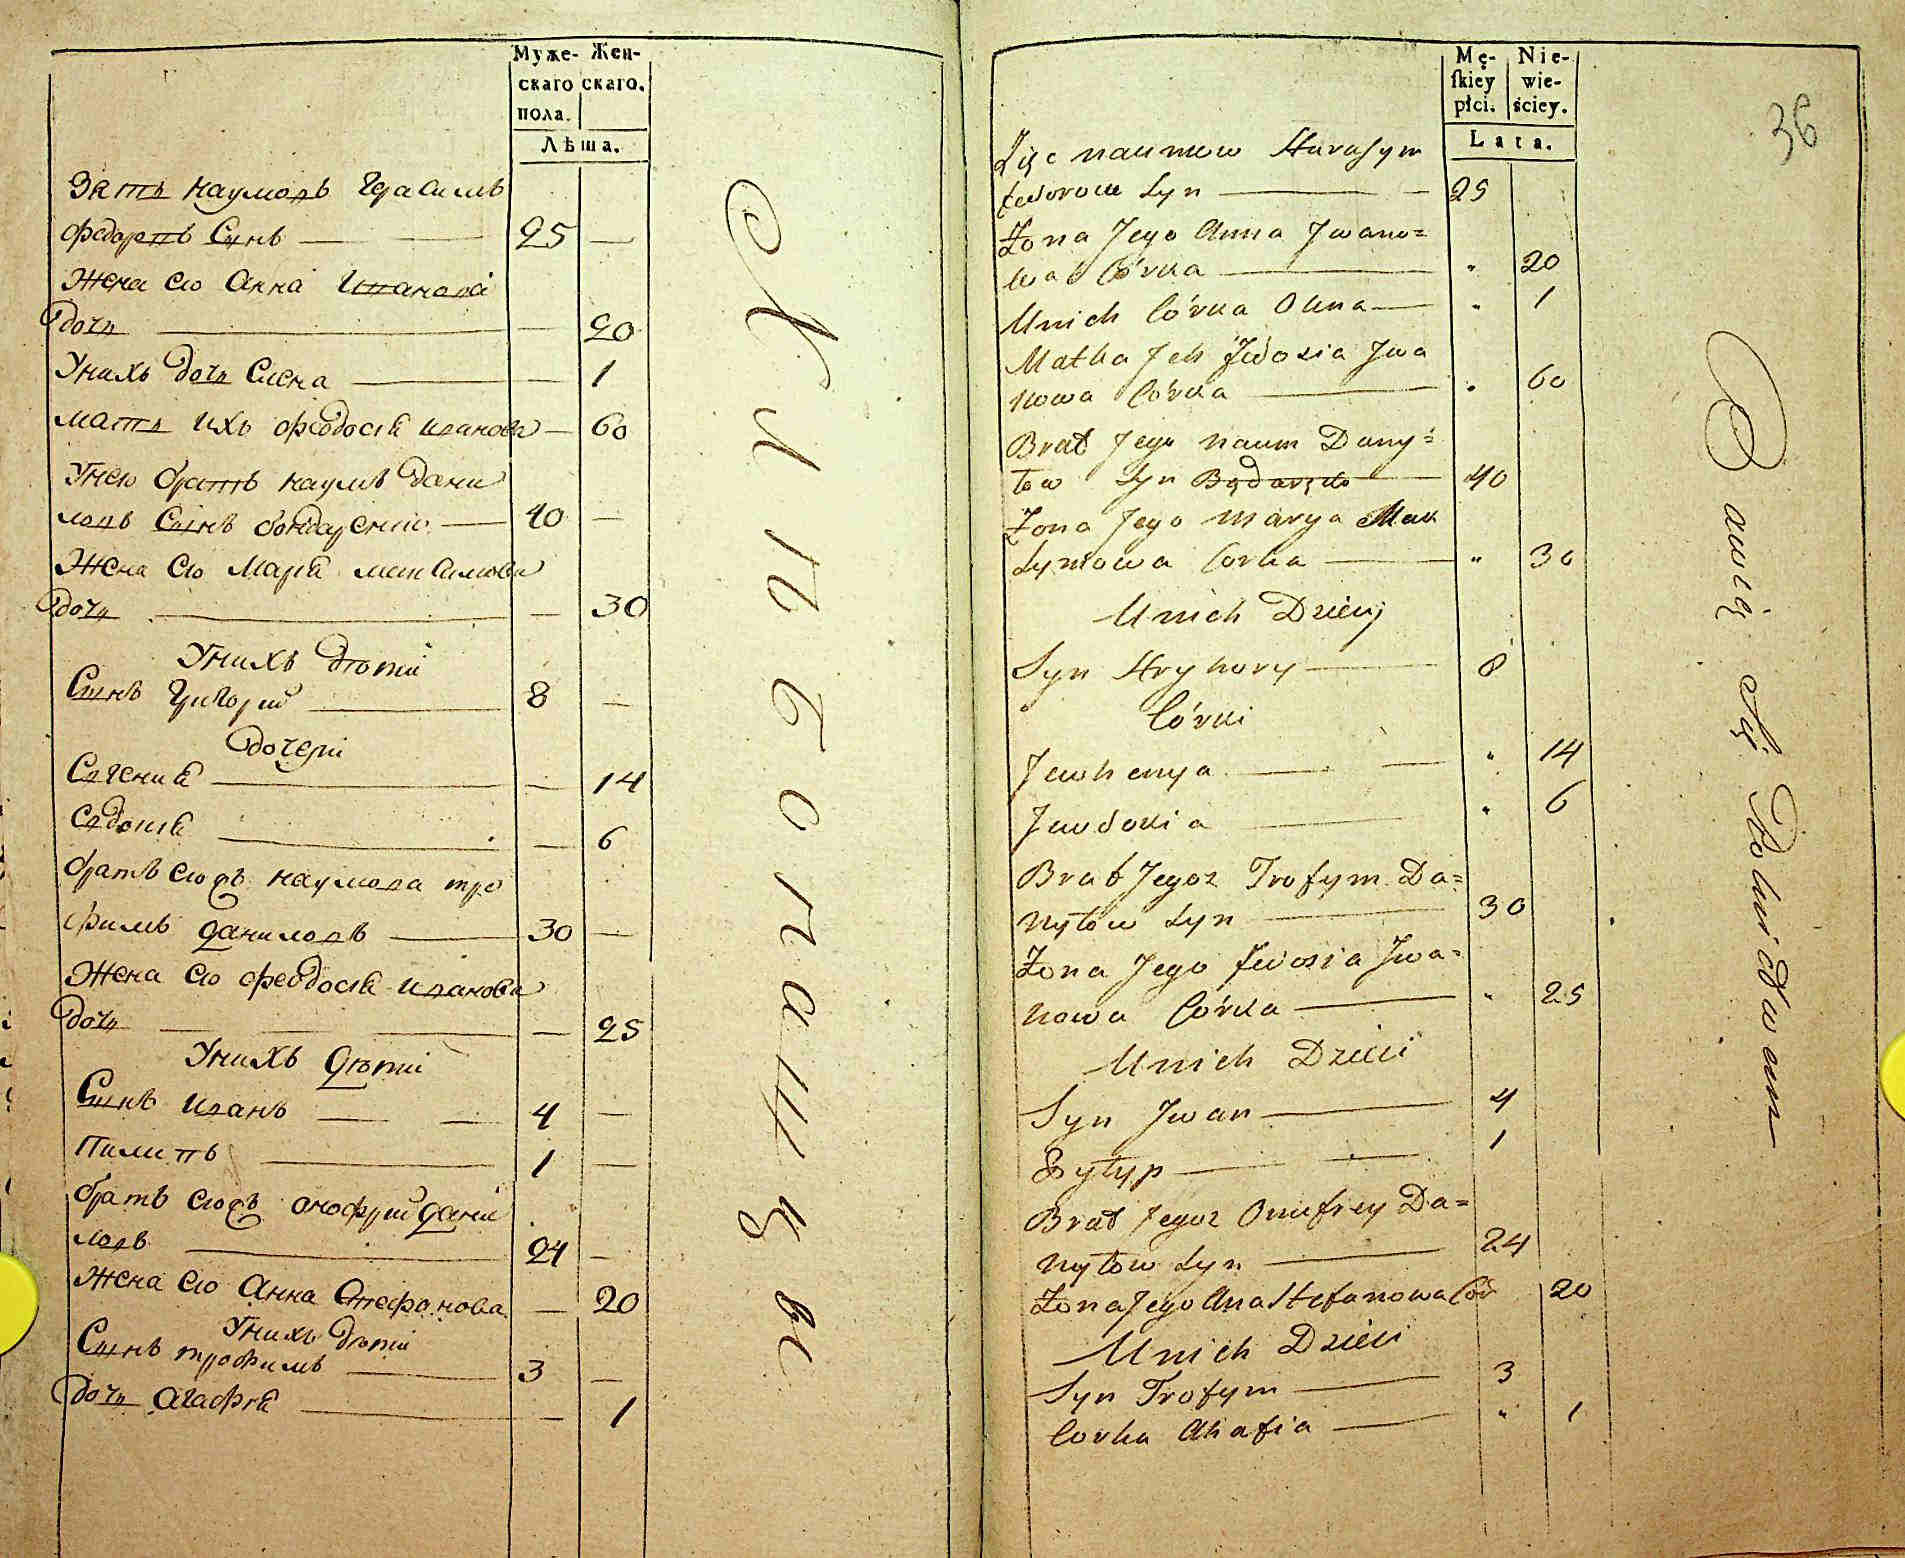 Муже-
скаго
пола.
Жен-
скаго.
Лѣта.
Зять наумовъ Герасимъ
федоровъ Сынъ — 25 —
Жена его Анна Иванова
дочь — — 20
Унихъ дочь Елена — — 1
мать ихъ феодосія иванова — 60
Унего братъ наумъ дани
ловъ Сынъ бондаренко — 40 —
Жена его Марія максимова
дочь — — 30
Унихъ дѣти
Сынъ Григорій — 8 —
дочери
Евгенія — — 14
Евдокія — — 6
братъ его наумова тро
фимъ даниловъ — 30 —
Жена его феодосія иванова
дочь — — 25
Унихъ дѣти
Сынъ иванъ — 4 —
Пилипъ — 1 —
братъ его онофрій дани
ловъ — 24 —
Жена его Анна Стефанова — 20
Унихъ дѣти
Сынъ трофимъ — 3 —
дочь Агафія — — 1
36
Mę-
ſkiey
płci.
Nie-
wie-
ściey.
Lata.
Zięc naumow Harasym
fedorow Syn — 25
Żona Jego Anna Jwano=
wa Córka — " 20
Unich Córka Olena — " 1
Matka Jch fedosia Jwa
nowa Córka — " 60
Brat Jego naum Dany=
łow Syn — 40
Żona Jego marya Mak
symowa Corka — " 30
Unich Dzieci
Syn Hryhory — 8
Córki
Jewhenya — " 14
Jewdokia — " 6
Brat Jegoz Trofym Da=
nyłow Syn — 30
Żona Jego fedosia Jwa=
nowa Córka — " 25
Unich Dzieci
Syn Jwan — 4
— 1
Brat Jegoz Onufrey Da=
nyłow Syn — 24
Żona Jego Ana Stefanowa Cór 20
Unich Dzieci
Syn Trofym — 3
Corka Ahafia — " 1